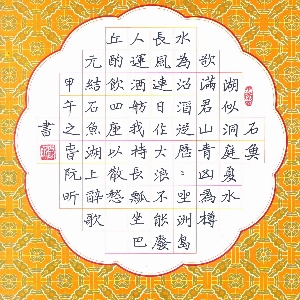 石魚
湖似洞庭夏水
欲滿君山青山為樽
水為沼酒徒歷々坐洲島
長風連日作大浪不能廢
人運酒舫我持長瓢坐巴
丘酌飲四座以散愁
元結石魚湖上醉歌
甲午之春阮昕
書